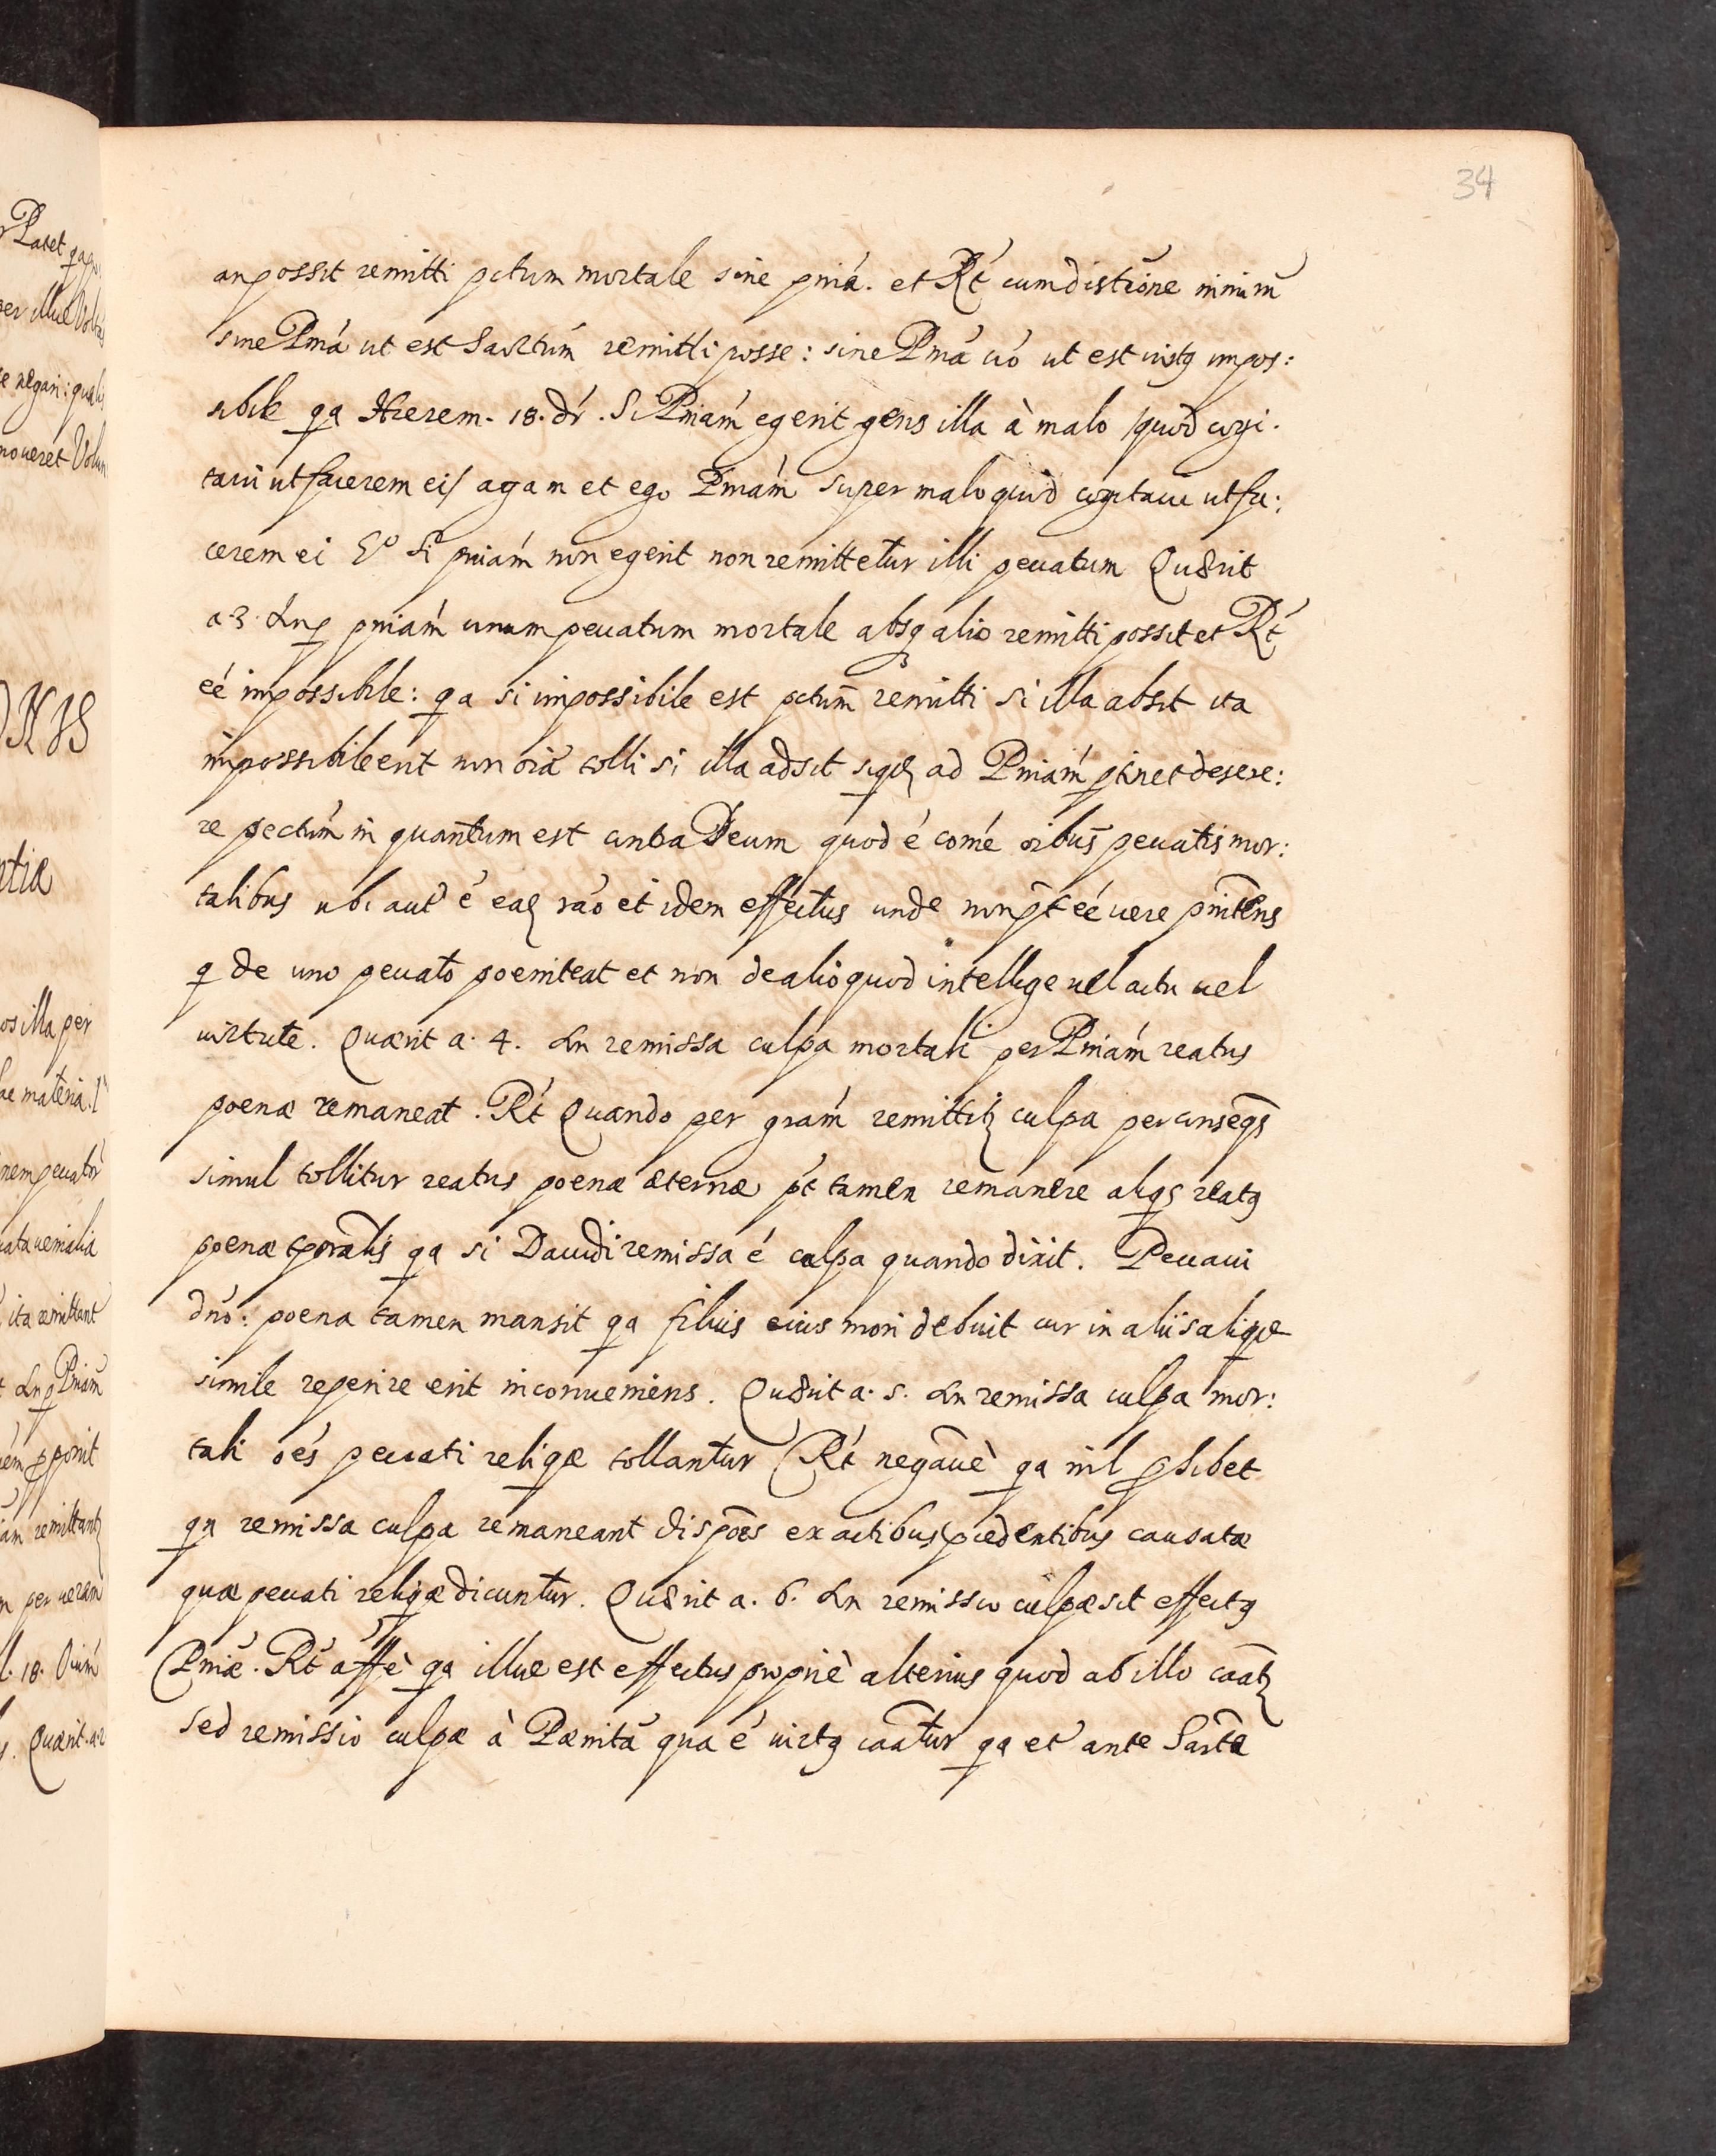 34
an possit remitti pctum mortale sine pniá. et Rt́ cum distióne nimiru᷉
sine Pniá ut est Sacrtúm remitti posse: sine Pniá uó ut est uirtꝰ impos:
sibile qa Hierem. 18. dŕ. Si Pniám egerit gens illa à malo /quod cogi.
taui ut facerem ei/ agam et ego Pniám super malo quod cogitaui ut fa:
cerem ei Eº si pniám non egerit non remittetur illi peccatum Quærit
a. 3. An ꝑ pniám unum peccatum mortale absqꝫ alio remitti possit et Rt́
eé impossibile: qa si impossibile est pctum̄ remitti si illa absit ita
impossibile erit non oiā tolli si illa adsit siqꝫ ad Pniám ꝑtinet desere:
re pectúm in quantum est contra Deum quod é comé oibus̄ peccatis mor:
talibus ubi aut é eaꝫ ráo et idem effectus unde non pt̄ eé uere pnitēns
q de uno peccato poeniteat et non de alio quod intellige uel actu uel
uirtute. Quærit a. 4. An remissa culpa mortali per Pniám reatus
poenæ remaneat. Rt́ Quando per gram remittitꝫ culpa per conseqs̄
simul tollitur reatus poenæ æternæ pt́ tamen remanere aliqs reatꝰ
poenæ tporālis qa si Dauidi remissa é culpa quando dixit. Peccaui
dnó: poena tamen mansit qa filius eius mori debuit cur in aliis aliqd
simile reperire erit inconueniens. Quærit a. 5. An remissa culpa mor:
tali oés peccati reliqæ tollantur Rt́ negāuè qa nil ꝓhibet
qn remissa culpa remaneant dispōes ex actibus pcedentibus causatæ
quæ peccati reliqæ dicuntur. Quærit a. 6. An remissio culpæ sit effectꝰ
Pniæ. Rt́ affè qa illud est effectus propriè alterius quod ab illo caātꝫ
sed remissio culpæ à Pænitā qua é uirtꝰ caātur qa et ante Sacrta